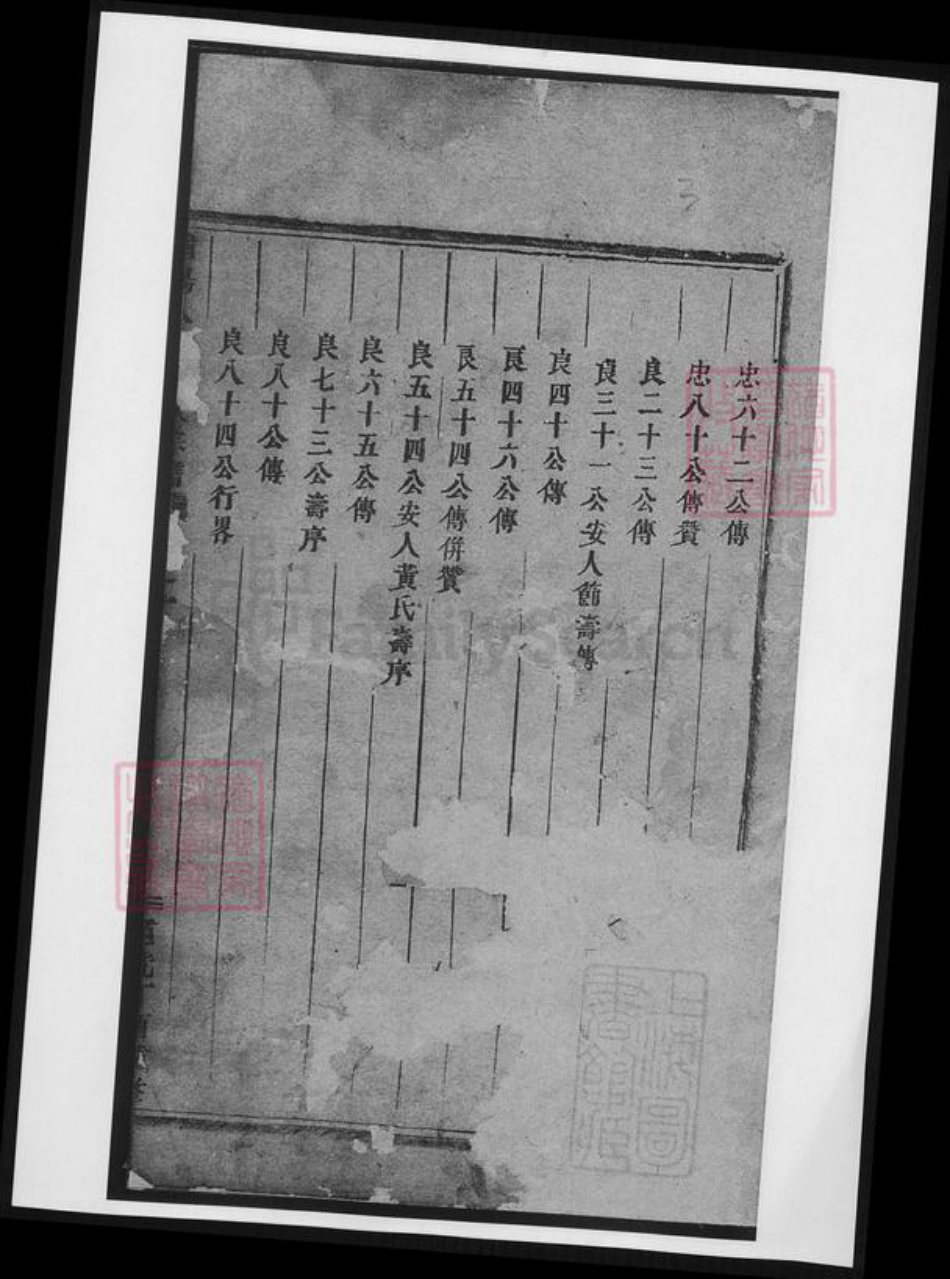 忠六十二公傳
忠八十公傳贊
良二十三公傳
良三十一公安人節壽傳
良四十公傳
良四十六公傳
良五十四公傳併贊
良五十四公安人黃氏壽序
良六十五公傳
良七十三公壽序
良八十公傳
良八十四公行畧
FamilySearch